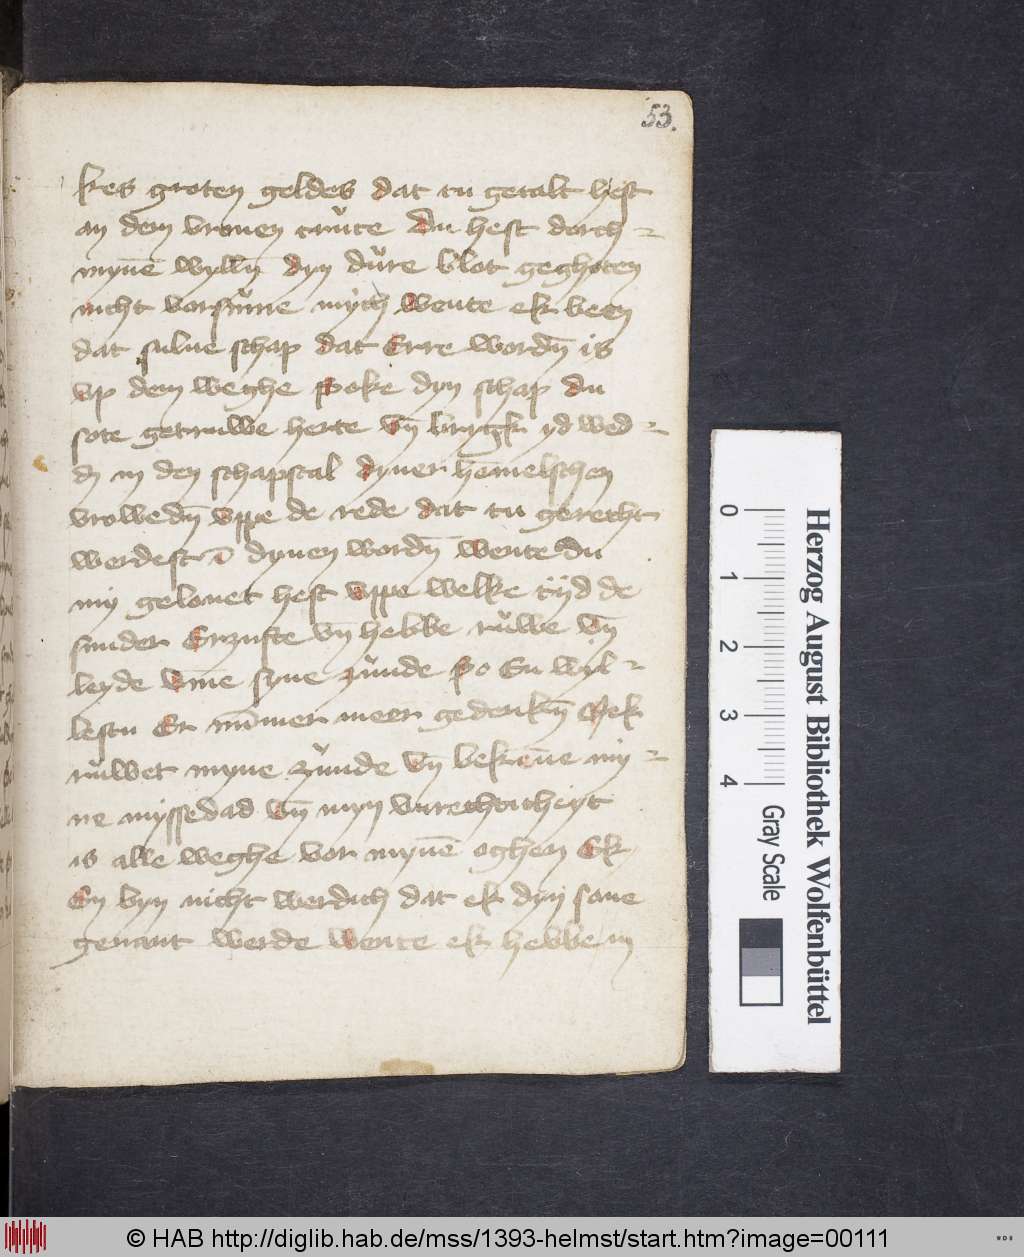 53.
kes groten geldes dat tu getalt hest
an dem vronen crůce Du hest dorch
mynē wyllē dyn důre blot geghoten
nicht vorsůme mych wente ek been
dat sulue schap dat Erre wordē is
vp dem weghe Soke dyn schap du
sote getruwe herte vn̄ bryngk yd wed
d̄ in den schapstal dyner hēmelschen
vrowedē vppe de rede dat tu gerecht
werdest ī dynen wordē wente du
my gelouet hest vppe welke tijd de
sunder Erzufte vn̄ hebbe růwe vn̄
leyde vm̄e syne zůnde So En wyl
lestu Er nūmer meer gedenkē Mek
růwet myne zůnde vn̄ bekēne my
ne myssedad vn̄ myn vnrechticheyt
is alle weghe vor mynē oghen Ek
En byn nicht werdich dat ek dyn sone
genant werde wente ek hebbe in
Herzog August Bibliothek Wolfenbüttel
0 1 2 3 4 Gray Scale
© HAB http://diglib.hab.de/mss/1393-helmst/start.htm?image=00111